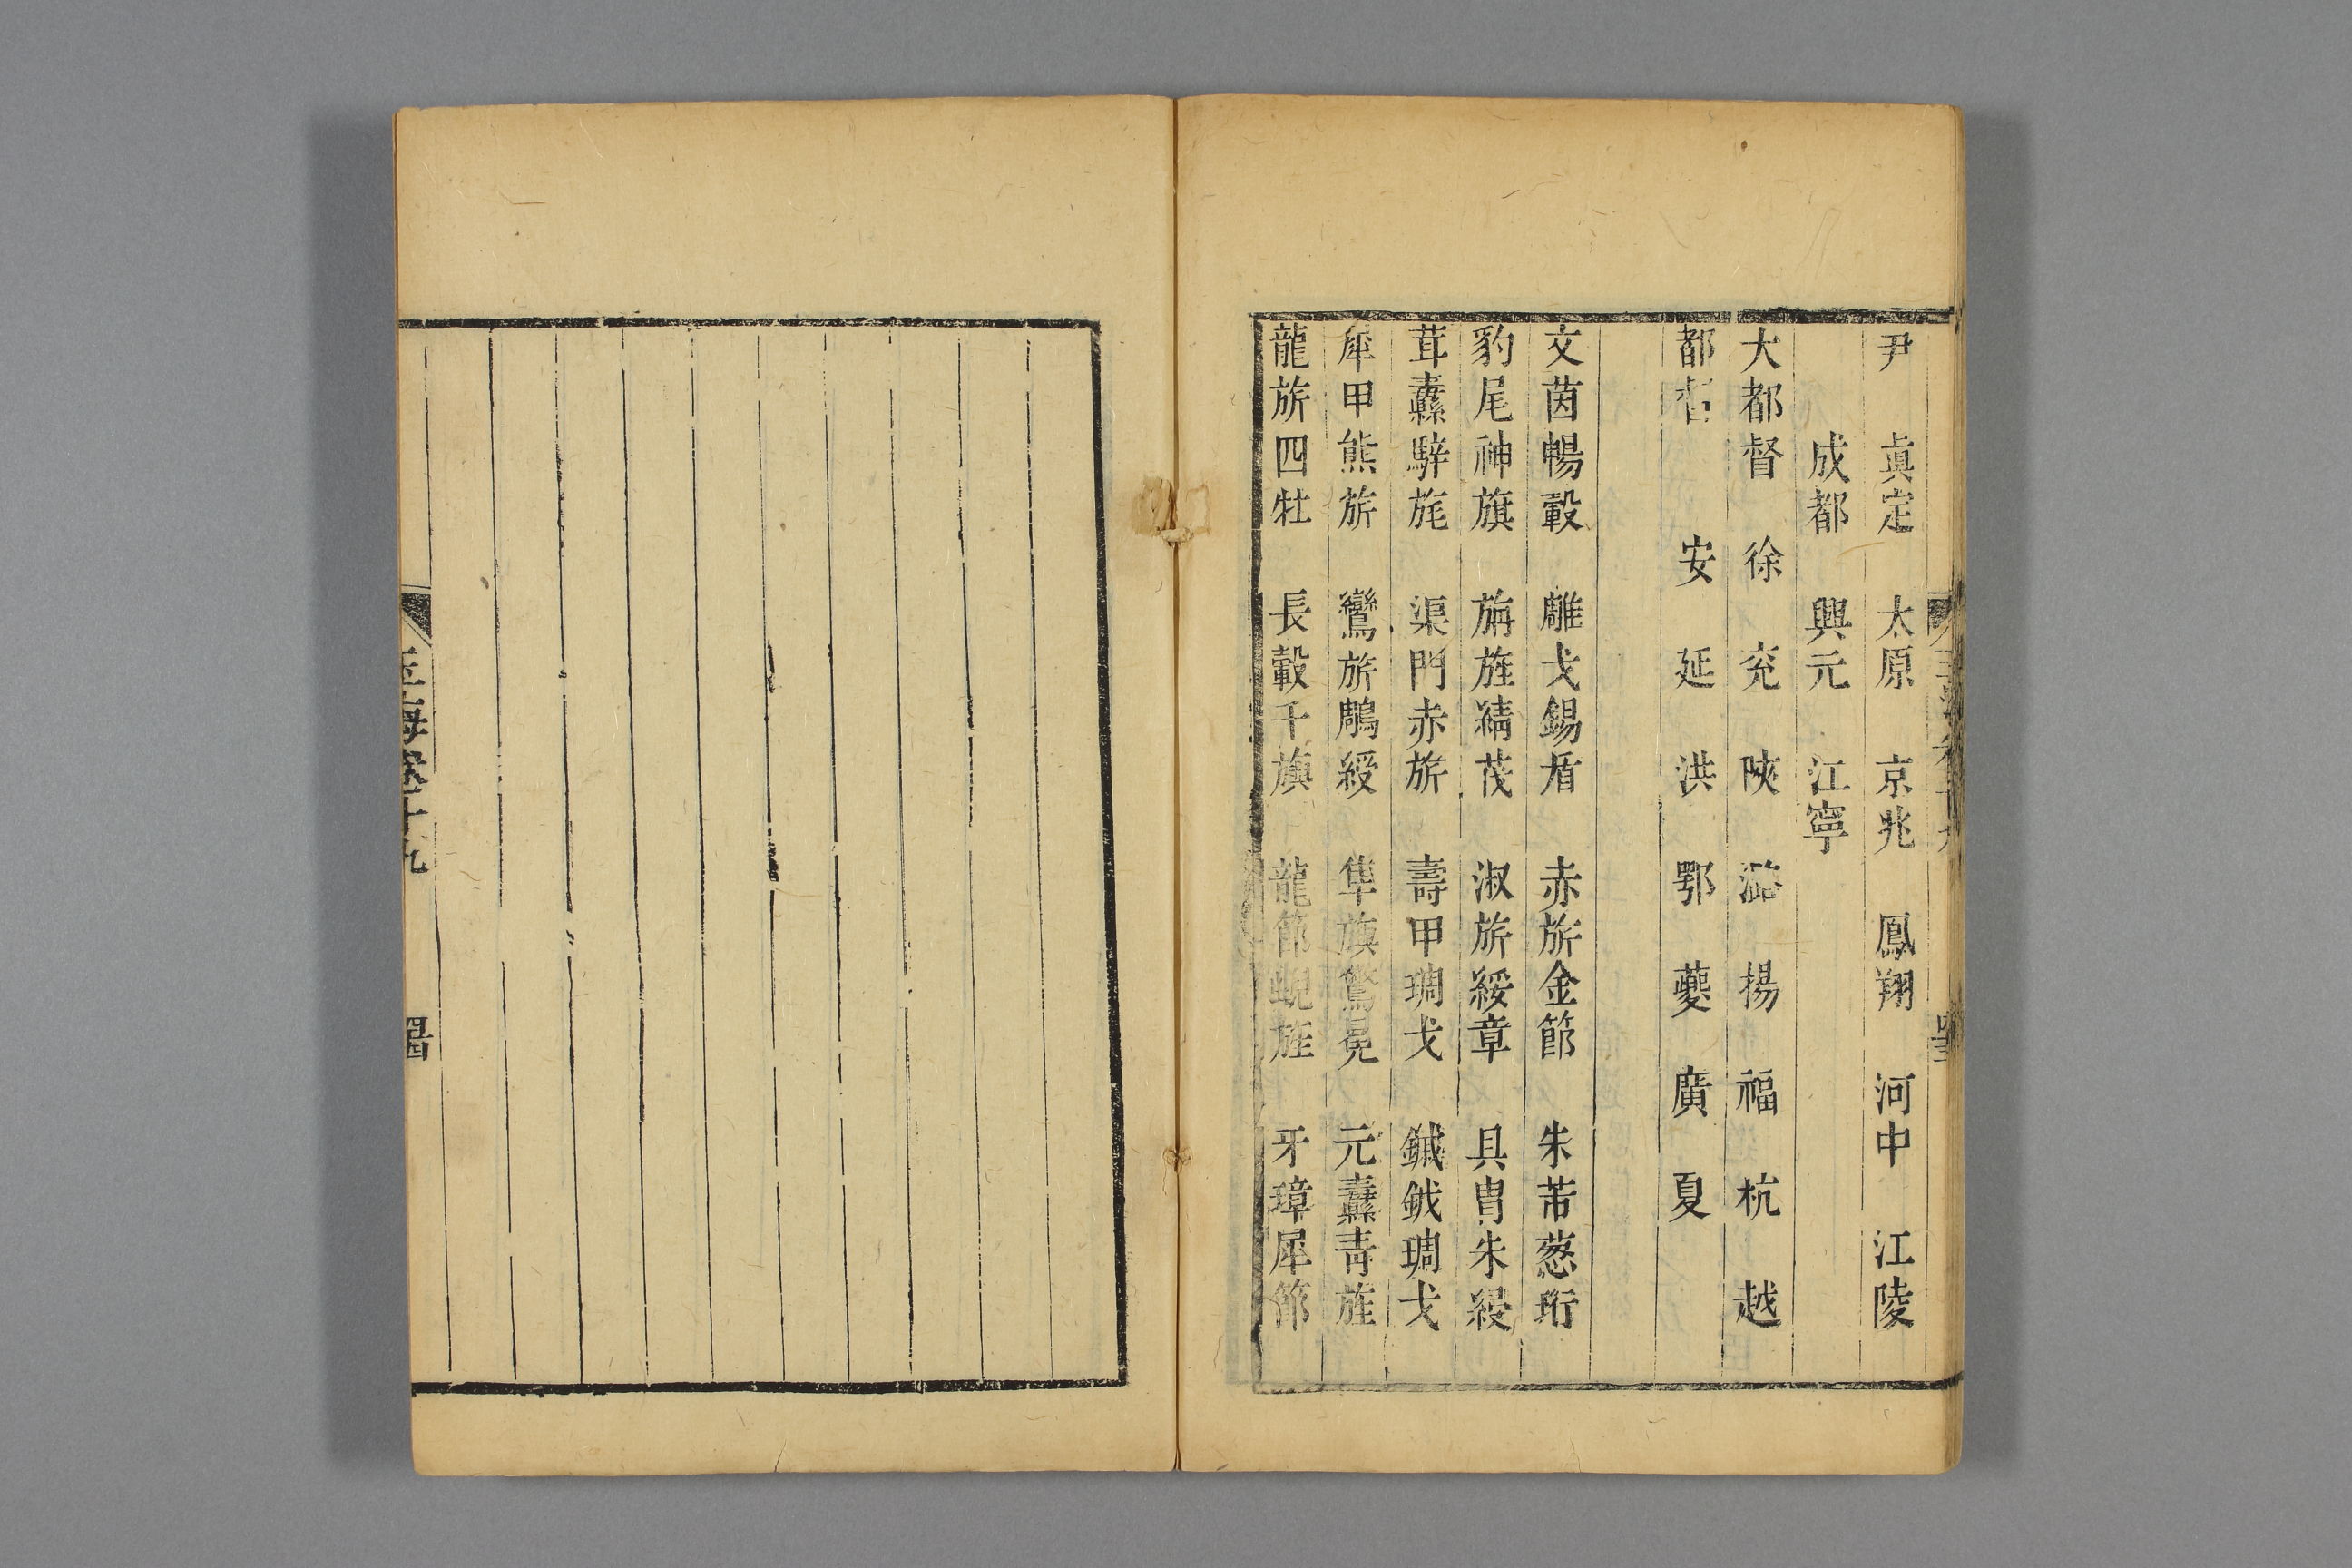 尹　眞定　太原　京兆　鳳翔　河中　江陵
成都　興元　江寧
大都督　徐　兗　陝　潞　揚　福　杭　越
都督　安　延　洪　鄂　夔　廣　夏
文茵暢轂　雕戈錫盾　赤旂金節　朱芾葱珩
豹尾神旗　旃旌綪茷　淑旂綏章　具冑朱綅
茸纛騂旄　渠門赤旂　壽甲琱戈　鏚鉞琱戈
犀甲熊旂　鸞旂鵰綬　隼旟鷩冕　元纛青旌
龍旂四牡　長轂千旟　龍節蜺旌　牙璋犀節